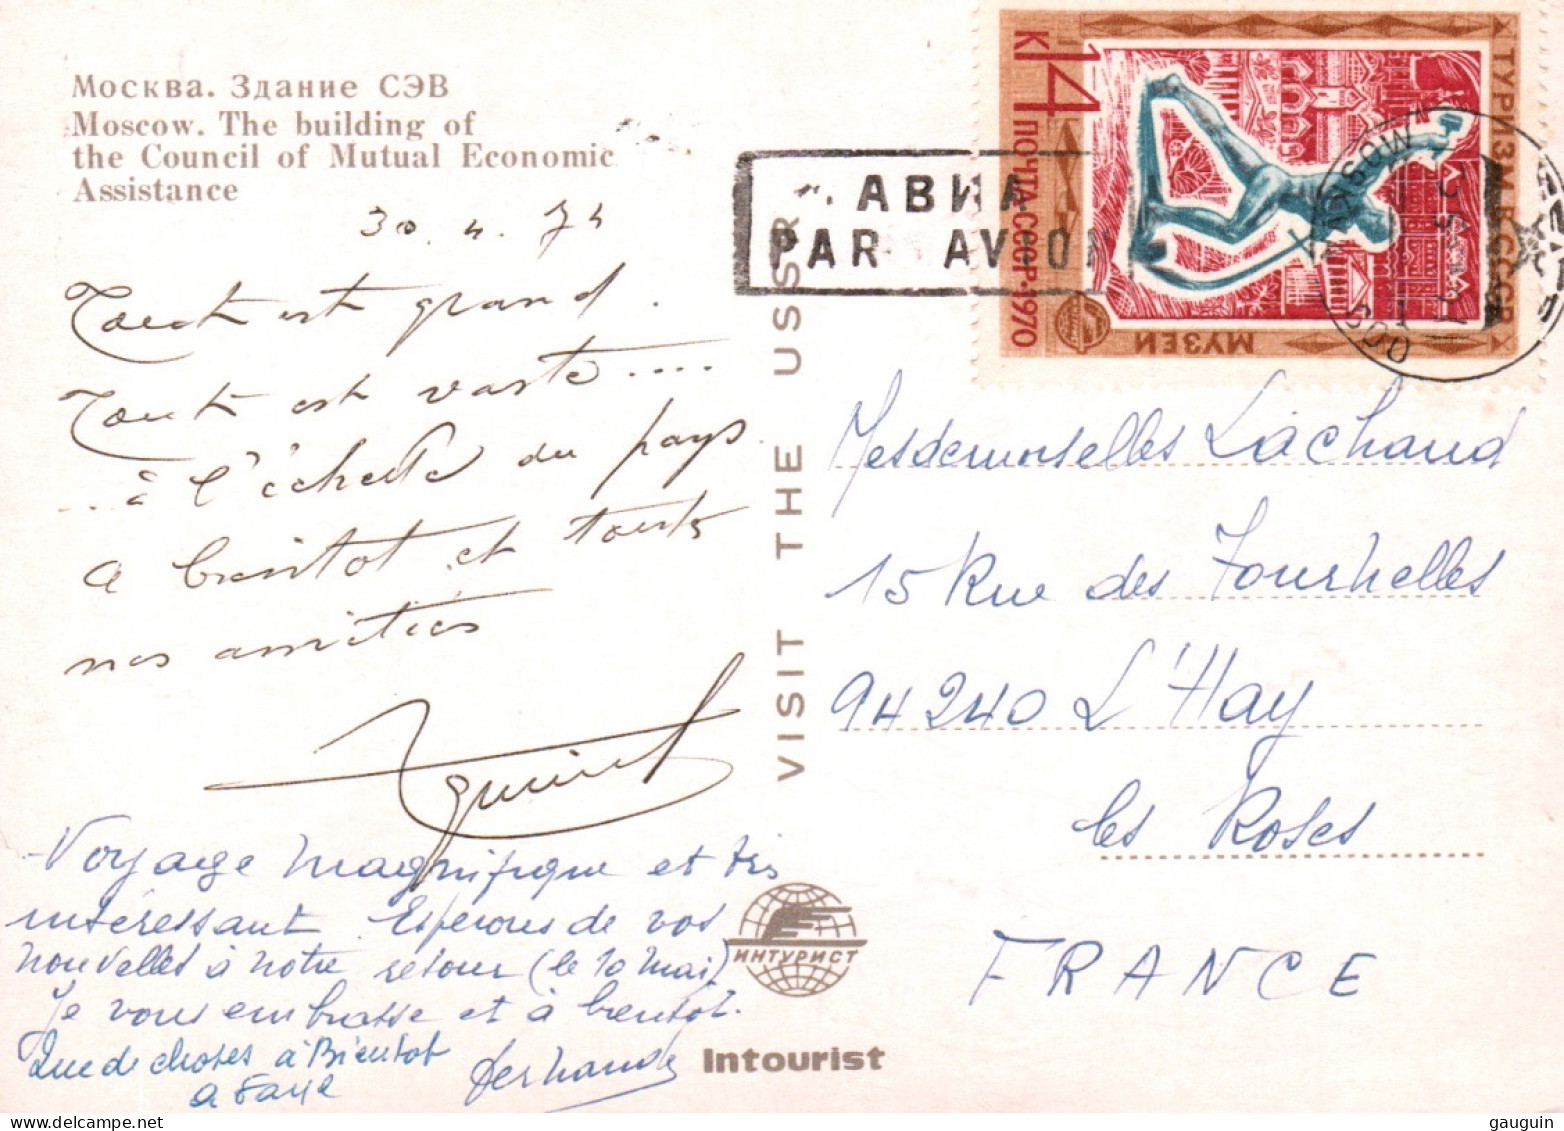 Москва. Здание СЭВ
Moscow. The building of
the Council of Mutual Economic
Assistance
30.4.74
Tout est grand.
Tout est vaste....
...à l'échelle du pays
a bientot et toutes
nos amitiés
Voyage magnifique et très
intéressant. Esperons de vos
nouvelles à notre retour (le 10 mai)
Je vous embrasse et à bientot.
Fernande
Que de choses à Bientot
VISIT THE USSR
ИНТУРИСТ
Intourist
АВИА
PAR AVION
14
К
ПОЧТА СССР·1970
ТУРИЗМ В СССР
МУЗЕИ
MOSKVA
Mesdemoiselles Lachaud
15 Rue des Tournelles
94240 L'Hay
les Roses
FRANCE
gauguin